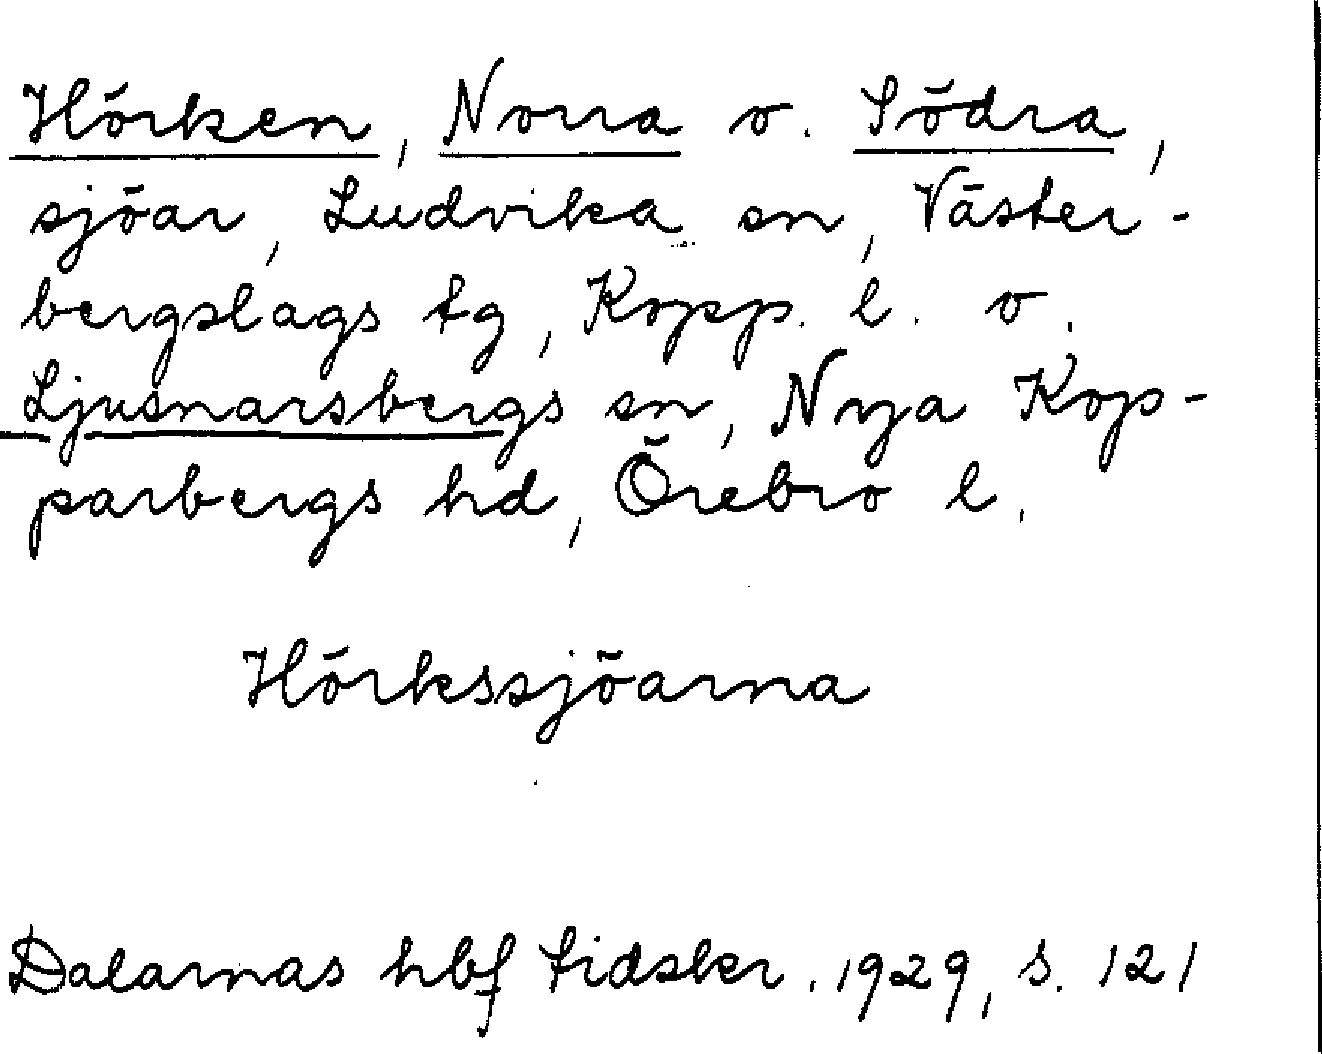 Hörken, Norra o. Södra,
sjöar, Ludvika sn, Väster-
bergslags tg, Kopp. l. o.
Ljusnarsbergs sn, Nya Kop-
parbergs hd, Örebro l.
Hörkssjöarna
Dalarnas hbf tidskr. 1929, s. 121